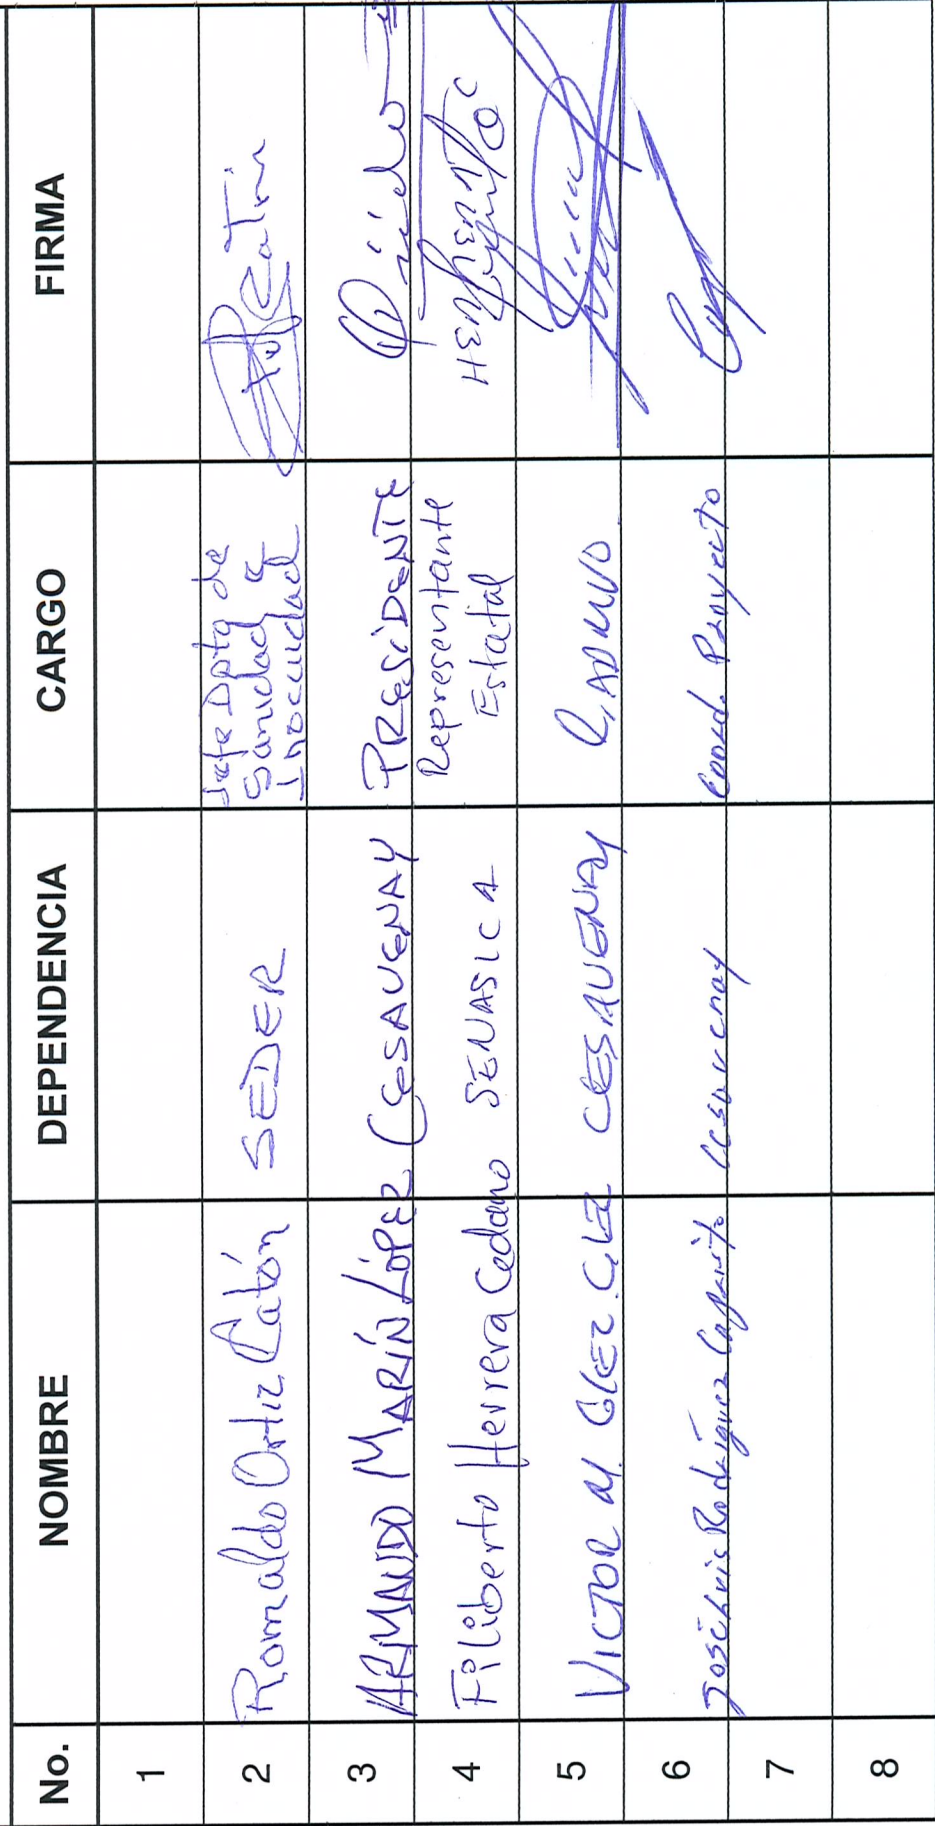 No. NOMBRE DEPENDENCIA CARGO FIRMA
1
2 Romaldo Ortiz Catón SEDER Jefe Dpto de Sanidad e Inocuidad
3 ARMANDO MARÍN LÓPEZ CESAVENAY PRESIDENTE
4 Filiberto Herrera Cedano SENASICA Representante Estatal
5 VICTOR M. GLEZ. GLEZ CESAVENAY C. ADMVO
6 José Luis Rodríguez Cesavenay Coord. Proyecto
7
8